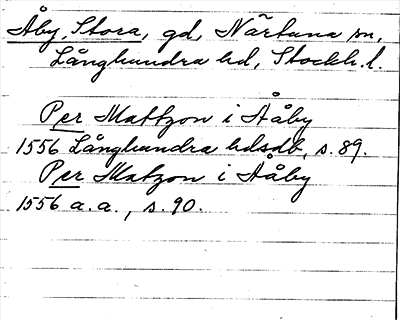 Åby, Stora, gd, Närtuna sn,
Långhundra hd, Stockh. l.
Per Mattzon i Håby
1556 Långhundra hdsdb, s. 89.
Per Matzon i Håby
1556 a.a., s. 90.